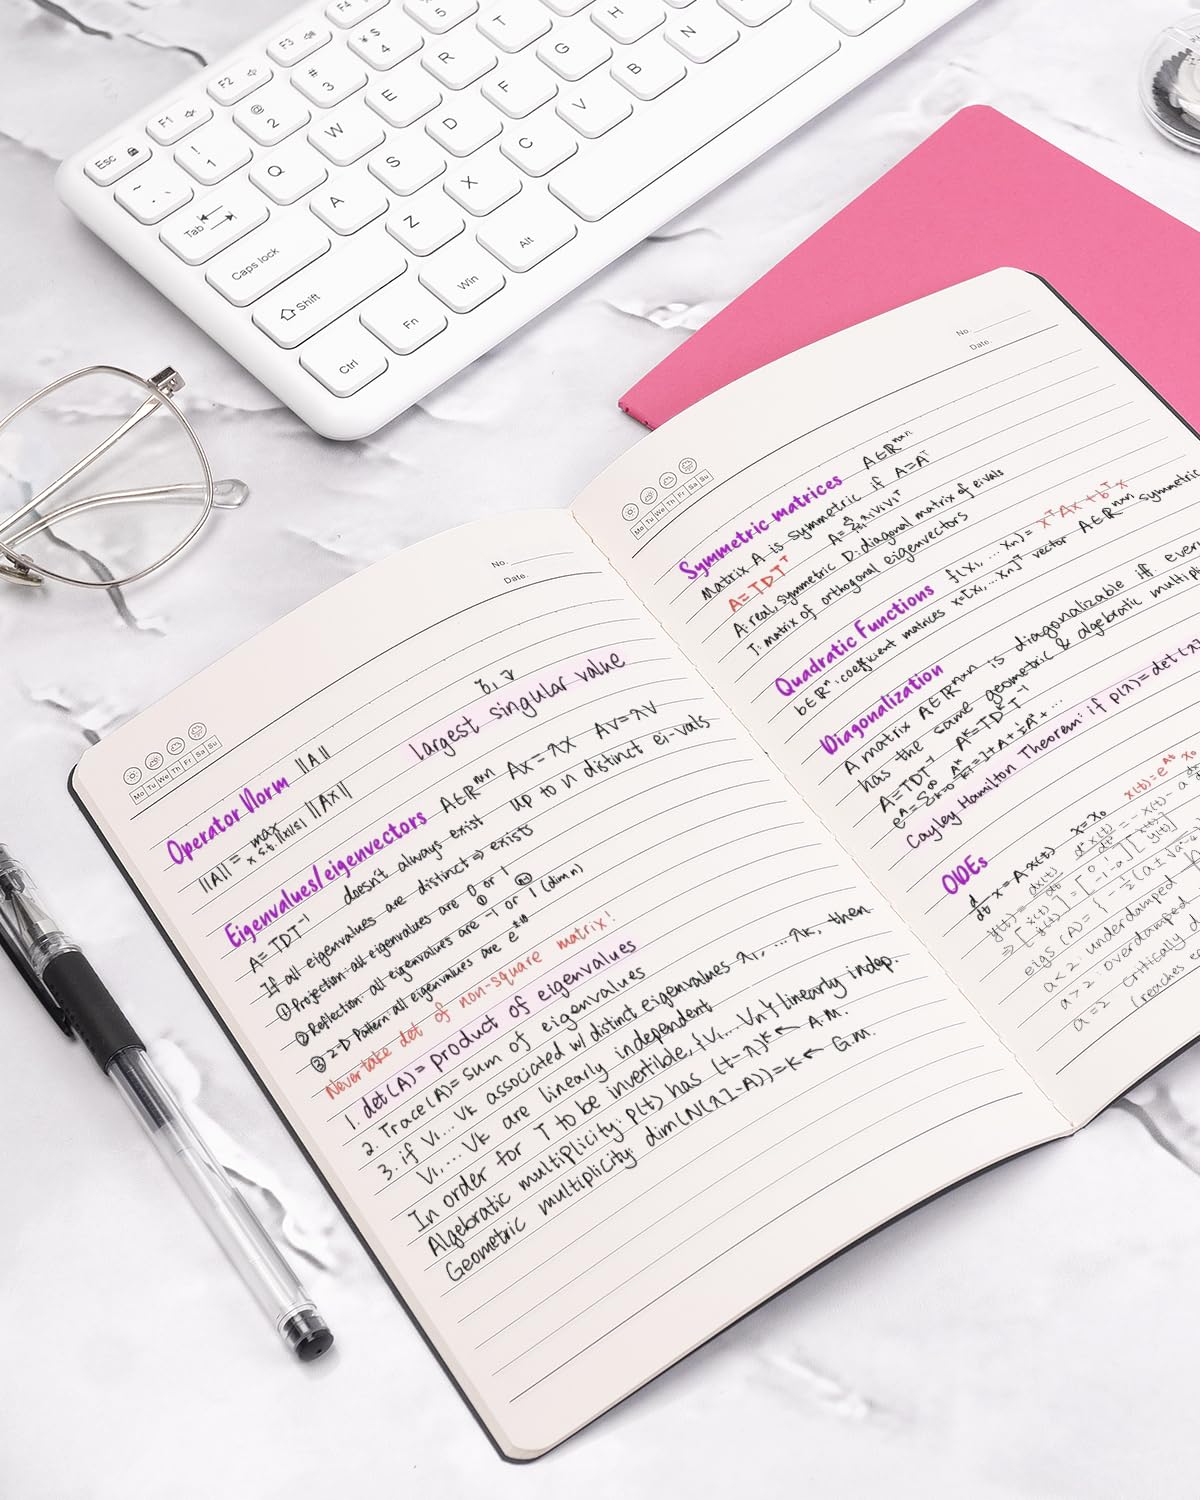 Esc F1 F2 F3 F4
~ ` ! 1 @ 2 # 3 ¥ $ 4 5
Tab Q W E R T
Caps lock A S D F G H
Shift Z X C V B N
Ctrl Fn Win Alt
No.
Date.
Mo Tu We Th Fr Sa Su
Operator Norm ||A||
largest singular value
||A|| = max x s.t. ||x||≤1 ||Ax||
Eigenvalues/eigenvectors A∈ℝⁿˣⁿ Ax=λx Av=λv
A=TDT⁻¹ doesn't always exist up to n distinct ei-vals
If all eigenvalues are distinct ⇒ exists
① Projection: all eigenvalues are 0 or 1
② Reflection: all eigenvalues are -1 or 1 (dim n)
③ 2-D Pattern: all eigenvalues are
Never take det of non-square matrix!
1. det(A) = product of eigenvalues
2. Trace(A) = sum of eigenvalues
3. if V₁... Vₖ associated w/ distinct eigenvalues λ₁, ... λₖ, then
V₁,... Vₖ are linearly independent
In order for T to be invertible, {V₁... Vₙ} linearly indep.
Algebratic multiplicity: p(t) has (t-λ)ᵏ ← A.M.
Geometric multiplicity: dim(N(λI-A)) = K ← G.M.
No.
Date.
Mo Tu We Th Fr Sa Su
Symmetric matrices A∈ℝⁿˣⁿ
Matrix A is symmetric if A=Aᵀ
A=TDTᵀ
A: real, symmetric D: diagonal matrix of eivals
T: matrix of orthogonal eigenvectors
Quadratic Functions f(x₁, ... xₙ) = xᵀAx+bᵀx
b∈ℝⁿ: coefficient matrices x=[x₁,...xₙ]ᵀ vector A∈ℝⁿˣⁿ symmetric
Diagonalization
A matrix A∈ℝⁿˣⁿ is diagonalizable iff every
has the same geometric & algebratic multipl
A=TDT⁻¹ Aᴷ=TDᴷT⁻¹
Cayley Hamilton Theorem: if p(λ)=det(λI
ODEs
d/dt x=Ax(t) x=x₀
eigs (A) =
a<2: underdamped
a>2: overdamped
a=2 critically d
(reaches eq